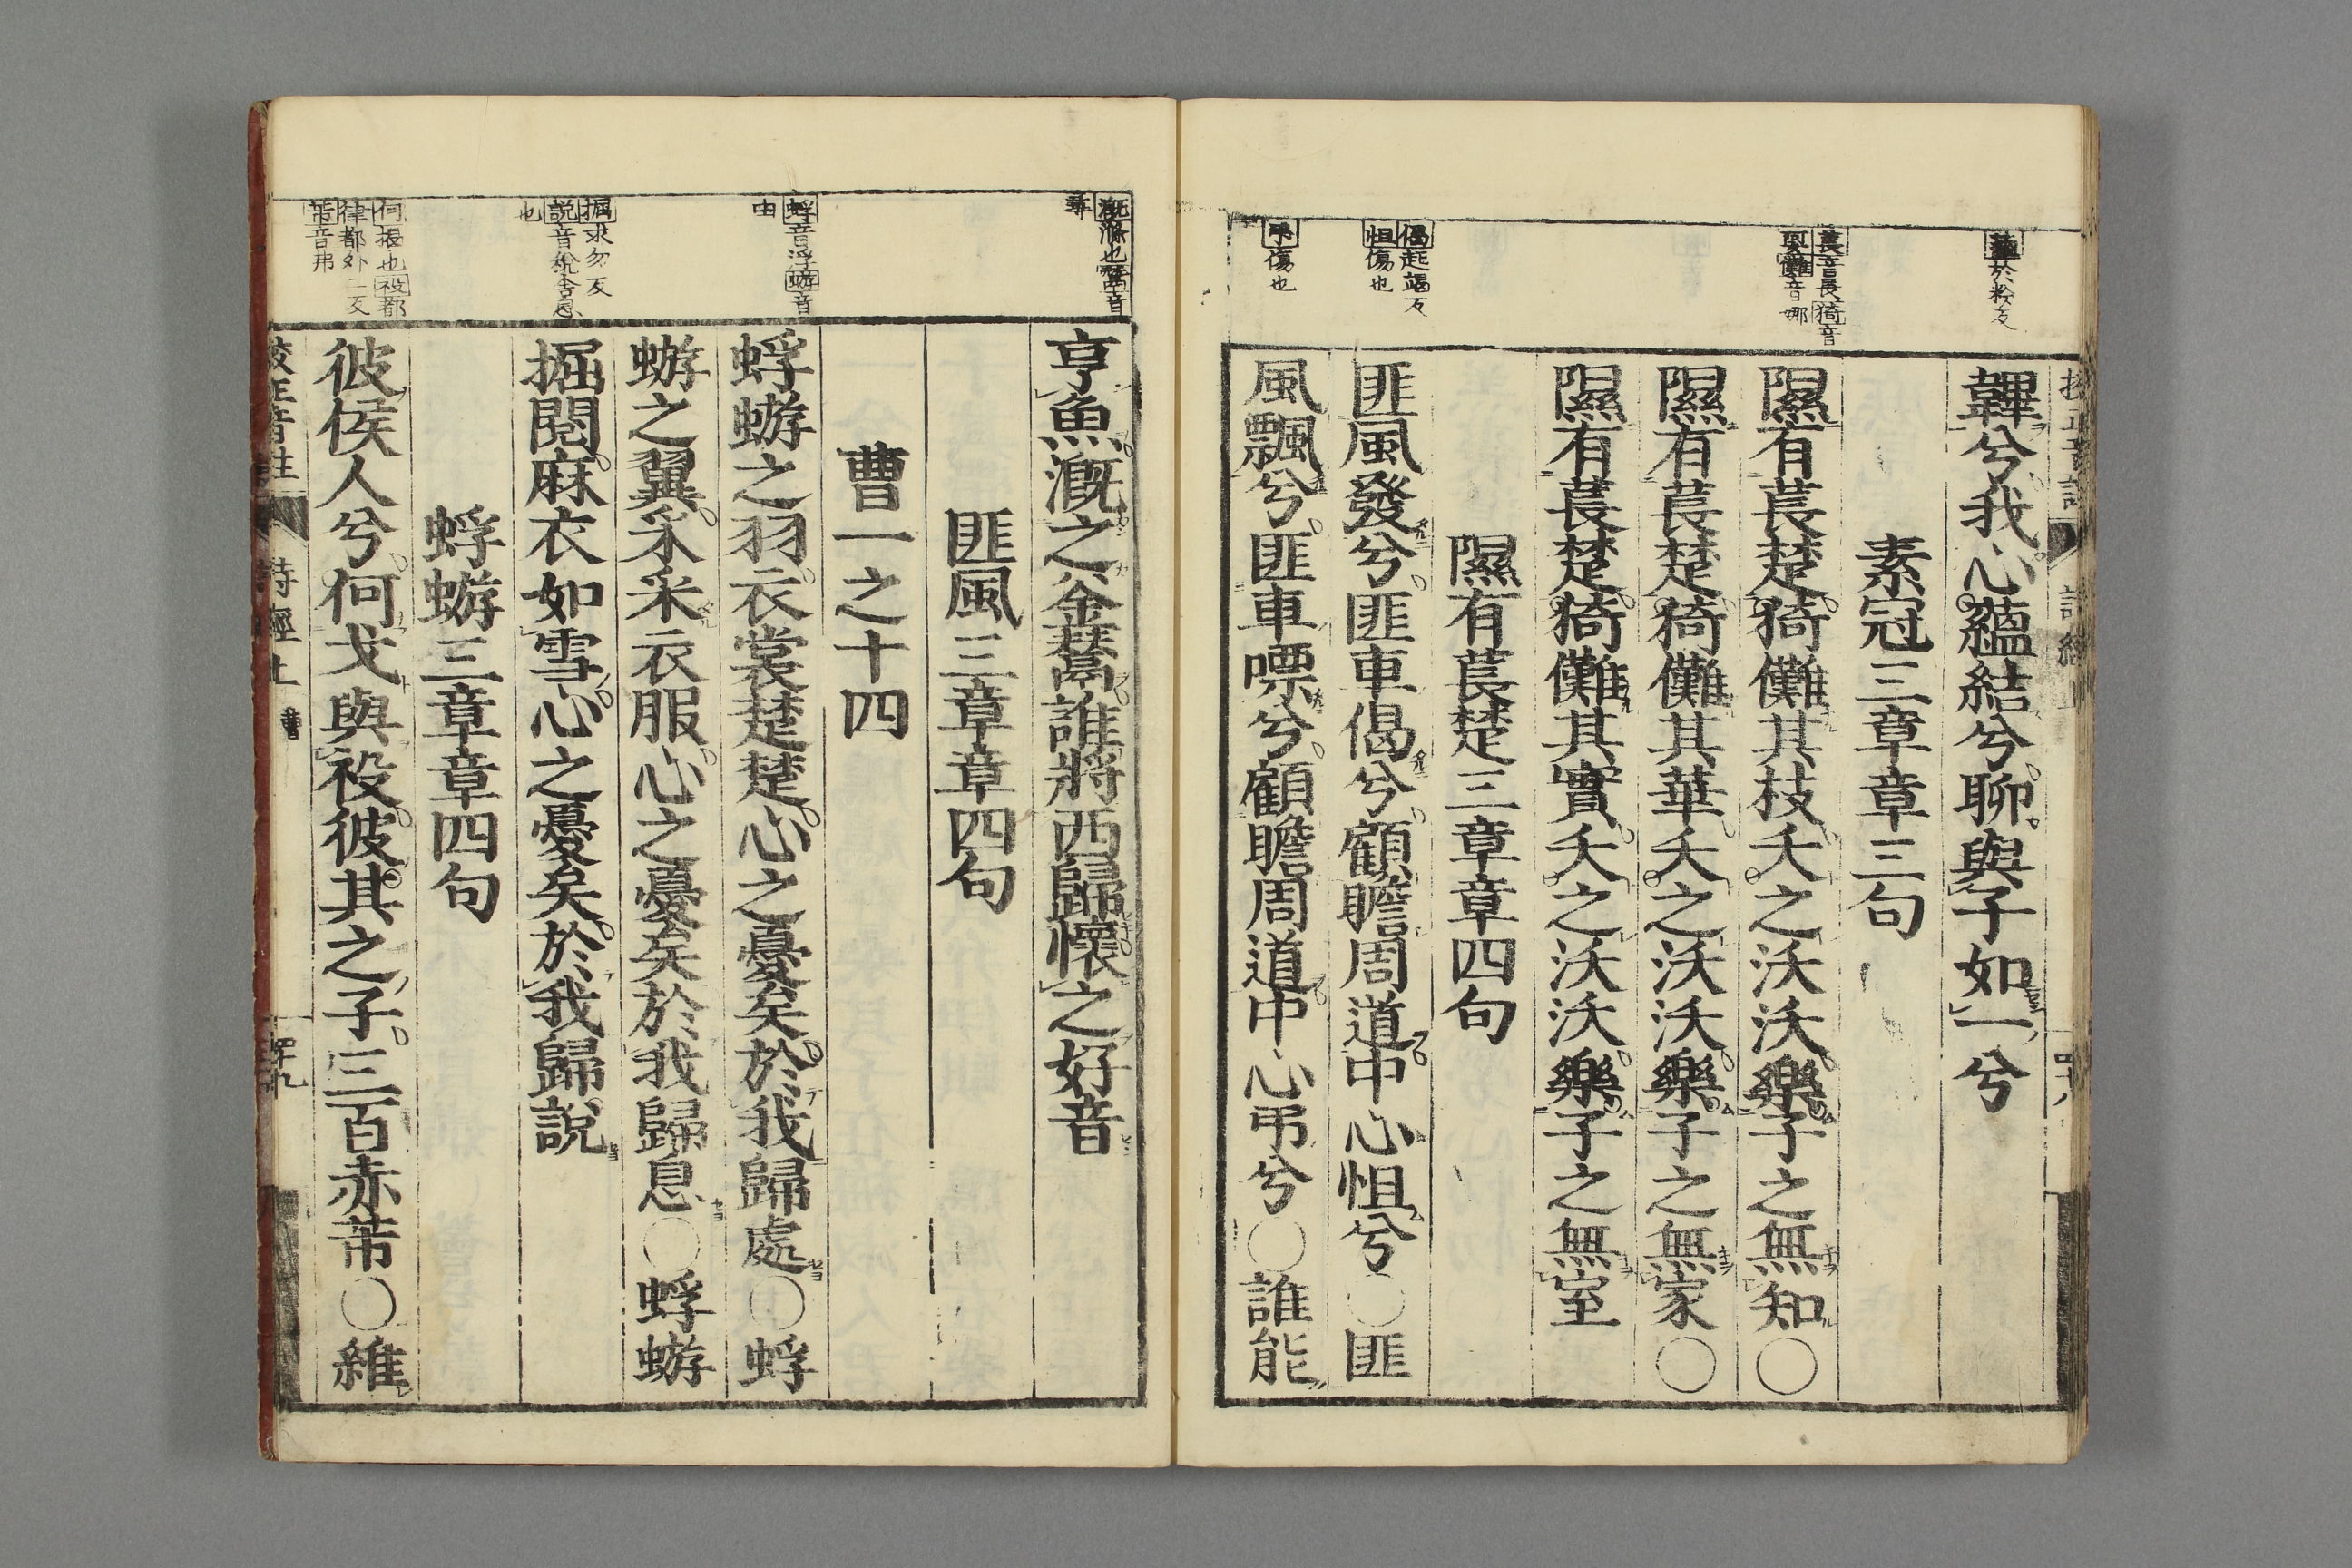 蘊於粉反
萇音長猗音
婀儺音娜
偈起竭反
怛傷也
弔傷也
韠兮我心蘊結兮聊與子如一兮
素冠三章章三句
隰有萇楚猗儺其枝夭之沃沃樂子之無知○
隰有萇楚猗儺其華夭之沃沃樂子之無家○
隰有萇楚猗儺其實夭之沃沃樂子之無室
隰有萇楚三章章四句
匪風發兮匪車偈兮顧瞻周道中心怛兮○匪
風飄兮匪車嘌兮顧瞻周道中心弔兮○誰能
溉滌也鬵音
尋
蜉音浮蝣音
由
掘求勿反
説音稅舍息
也
何掦也祋都
律都外二反
芾音弗
亨魚溉之釜鬵誰將西歸懷之好音
匪風三章章四句
曹一之十四
蜉蝣之羽衣裳楚楚心之憂矣於我歸處○蜉
蝣之翼采采衣服心之憂矣於我歸息○蜉蝣
掘閱麻衣如雪心之憂矣於我歸説
蜉蝣三章章四句
彼侯人兮何戈與祋彼其之子三百赤芾○維
校正音註 詩經上 四十九